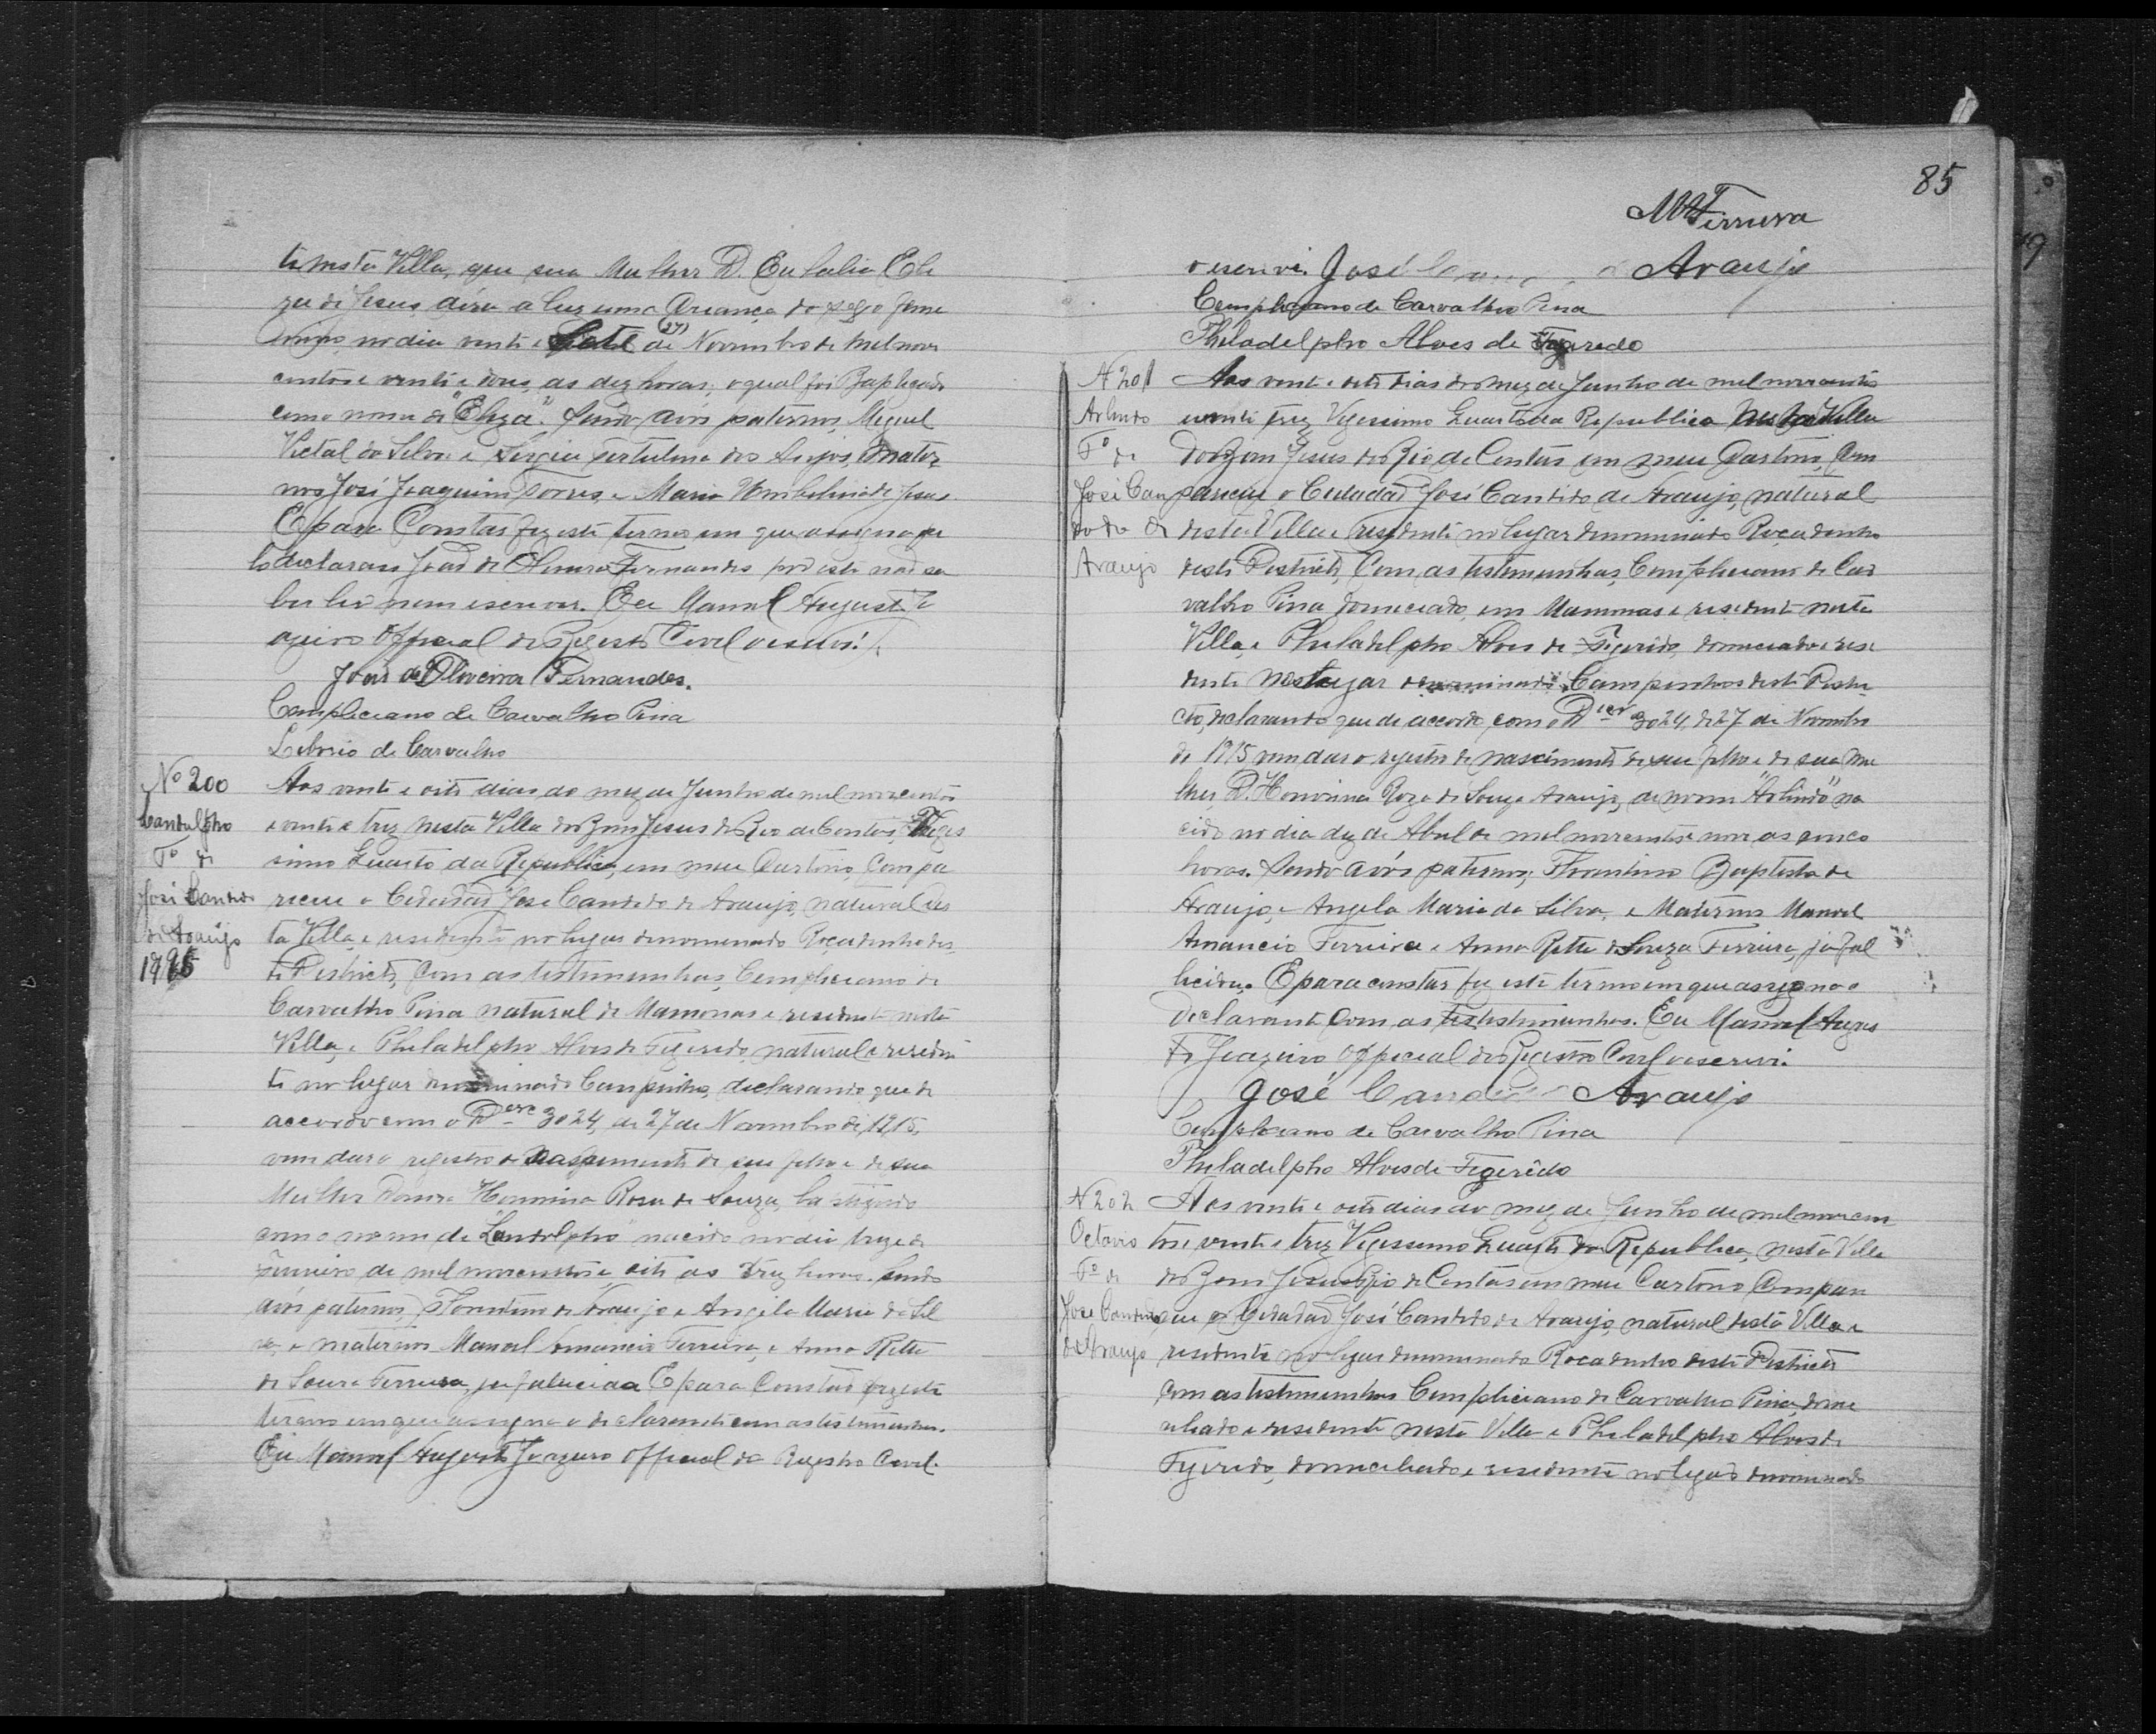 te nesta Villa, que sua Mulher D. Eulalia Eli
za de Jesus dera a luz uma Criança do sexo feme
nino, no dia vinte e Sete (27) de Novembro de mil nove
centos e vinte e dous, as dez horas, o qual foi Baptizado
como nome de "Eliza". Sendo avós paternos, Miguel
Victal da Silva e dos Anjos, mater
nos José Joaquim Torres, e Maria Umbelina de Jesus.
E para Constar fiz este termo em que assigna pe
lo declarante João de Oliveira Fernandes por este não sa
ber ler nem escrever. Eu Manoel Augusto J
azeiro Official do Registro Civel o escrevi.
João de Oliveira Fernandes.
Compliciano de Carvalho Pina
Liborio de Carvalho
Nº 200
Landulpho
Fº de
José Candido
de Araujo
Aos vinte e oito dias do mez de Junho de mil novecentos
e vinte e trez nesta Villa do Bom Jesus do Rio de Contas, Viges
simo Quarto da Republica, em meu Cartorio, Compa
receu o Cidadão José Candido de Araujo, natural des
ta Villa, e residente no lugar denominado Roça dentro des
te Districto, Com as testimunhas, Compliciano de
Carvalho Pina natural de Mamonas e residente nesta
Villa, e Philadelpho Alves de Figeredo, natural e residen
te no lugar denominado Campinhos, declarando que de
accordo com o Decr 3024, de 27 de Novembro de 1915,
vem dar o registro de Nascimento de seu filho e de sua
Mulher Donna Honorina Rosa de Souza
com o nome de "Landolpho" nacido no dia treze de
Janeiro de mil novecentos e oito as trez horas. Sendo
avós paternos, Florentino de Araujo e Angela Maria da Sil
va, e maternos Manoel Amancio Ferreira, e Anna Ritta
de Souza Ferreira, ja falicida E para Constar fiz este
termo em que assigna o declarante com as testimunhas.
Eu Manoel Augusto Joazeiro Official do Registro Civel.
85
Ferreira
o escrevi. José Araujo
Compliciano de Carvalho Pina
Philadelpho Alves de Figeredo
N 201
Arlindo
Fº de
José Can
dido de
Araujo
Aos vinte e oito dias do mez de Junho de mil novecentos
e vinte trez Vigessimo Quarto da Republica nesta Villa
do Bom Jesus do Rio de Contas em meu Cartorio, Com
pareceu o Cidadão José Candido de Araujo, natural
desta Villa e residente no lugar denominado Roça dentro
deste Districto, Com as testimunhas, Compliciano de Car
valho Pina domiciado, em Mamonas e residente nesta
Villa, e Philadelpho Alves de Figerêdo, domiciado e resi
dente no lugar denominado Campinhos deste Distri
cto, declarando que de accordo com o Decr 3024, de 27 de Novembro
de 1915 vem dar o registro de nascimento de seu filho e de sua Mu
lher, D. Honorina Roza de Souza Araujo, de nome "Arlindo" na
cido no dia dez de Abril de mil novecentos e nove as cinco
horas. Sendo avós paternos; Florentino Baptista de
Araujo, e Angela Maria da Silva, e Maternos Manoel
Amancio Ferreira e Anna Ritta de Souza Ferreira, ja fal
licida. E para constar fiz este termo em que assigna o
declarante com as testimunhas. Eu Manoel Augus
to Joazeiro Official do Registro Civel o escrevi.
José Candido Araujo
Compliciano de Carvalho Pina
Philadelpho Alves de Figerêdo
N 202
Octavio
Fº de
José Candido
de Araujo
Aos vinte e oito dias do mez de Junho de mil novecen
tos e vinte e trez Vigessimo Quarto da Republica, nesta Villa
do Bom Jesus do Rio de Contas em meu Cartorio Compare
ceu o Cidadão José Candido de Araujo, natural desta Villa e
residente no lugar denominado Roça dentro deste Districto
com as testimunhas Compliciano de Carvalho Pina, domi
ciliado e residente nesta Villa e Philadelpho Alves de
Figeredo, domiciliado e residente no lugar denominado